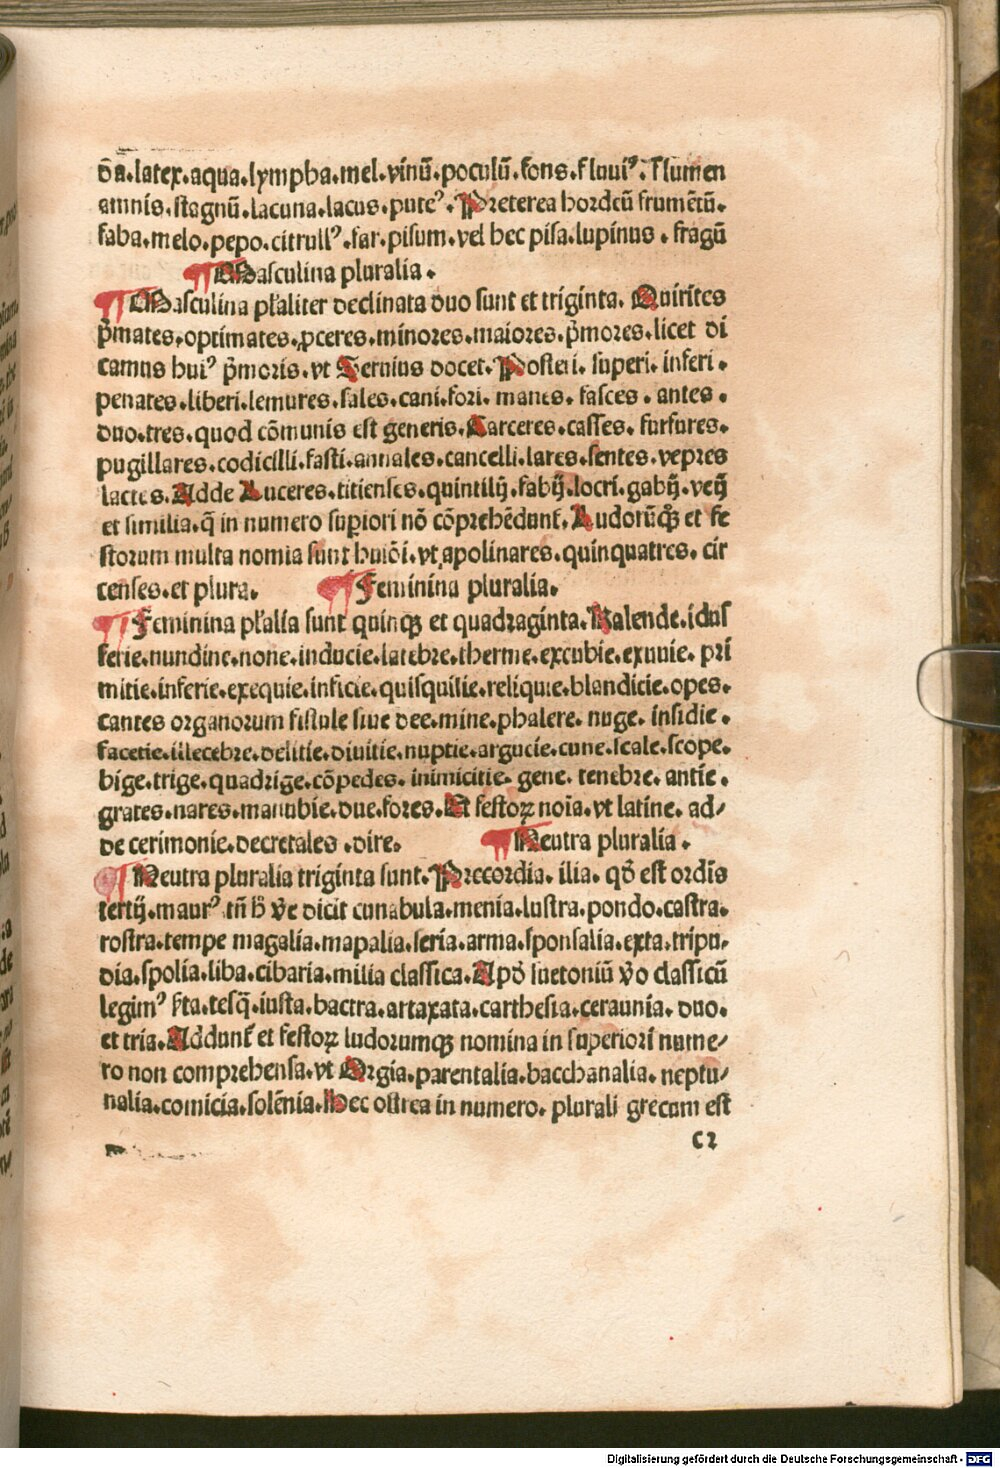 vn̄a.latex.aqua.lympha.mel.vinū.poculū.fons.fluuiꝰ.flumen
amnis.stagnū.lacuna.lacus.puteꝰ.Preterea hordeū frumētū.
faba.melo.pepo.citrullꝰ.far.pisum.vel hec pisa.lupinus.fragū
Masculina pluralia.
Masculina pl̄aliter declinata duo sunt et triginta. Quirites
p̄mates.optimates.ꝓceres.minores.maiores.p̄mores.licet di
camus huiꝰ p̄moris.vt Seruius docet.Posteri. superi.inferi.
penates.liberi.lemures.sales.cani.fori.manes.fasces.antes.
duo.tres.quod cōmunis est generis.Carceres.casses.furfures.
pugillares.codicilli.fasti.annales.cancelli.lares.sentes.vepres
lactes.Adde Luceres.titienses.quintilij.fabij.locri.gabij.veij
et similia.q̄ in numero superiori nō cōprehēdunt᷑.Ludorūqꝫ et fe
storum multa nomia sunt huiōi.vt apolinares.quinquatres.cir
censes.et plura.
Feminina pluralia.
Feminina pl̄alia sunt quinqꝫ et quadraginta.Kalende.idus
ferie.nundine.none.inducie.latebre.therme.excubie.exuuie.pri
mitie.inferie.exequie.inficie.quisquilie.reliquie.blandicie.opes.
cantes organorum fistule siue dee.mine.phalere.nuge.insidie.
facetie.illecebre.delitie.diuitie.nuptie.argucie.cune.scale.scope.
bige.trige.quadrige.cōpedes.inimicitie.gene.tenebre.antie.
grates.nares.manubie.due.fores.Et festoꝝ noīa.vt latine.ad-
de cerimonie.decretales.dire.
Neutra pluralia.
Neutra pluralia triginta sunt.Precordia.ilia.qd̄ est ordīs
tertij.maurꝰ tn̄ h̄ v̄e dicit cunabula.menia.lustra.pondo.castra.
rostra.tempe magalia.mapalia.seria.arma.sponsalia.exta.tripu-
dia.spolia.liba.cibaria.milia classica.Apd̄ suetoniū v̄o classicū
legimꝰ.tesq̄.iusta.bactra.artaxata.carthesia.ceraunia.duo.
et tria.Addunt᷑ et festoꝝ ludorumqꝫ nomina in superiori nume-
ro non comprehensa.vt Orgia.parentalia.bacchanalia.neptu-
nalia.comicia.solēnia.Hec ostrea in numero.plurali grecum est
c2
Digitalisierung gefördert durch die Deutsche Forschungsgemeinschaft - DFG